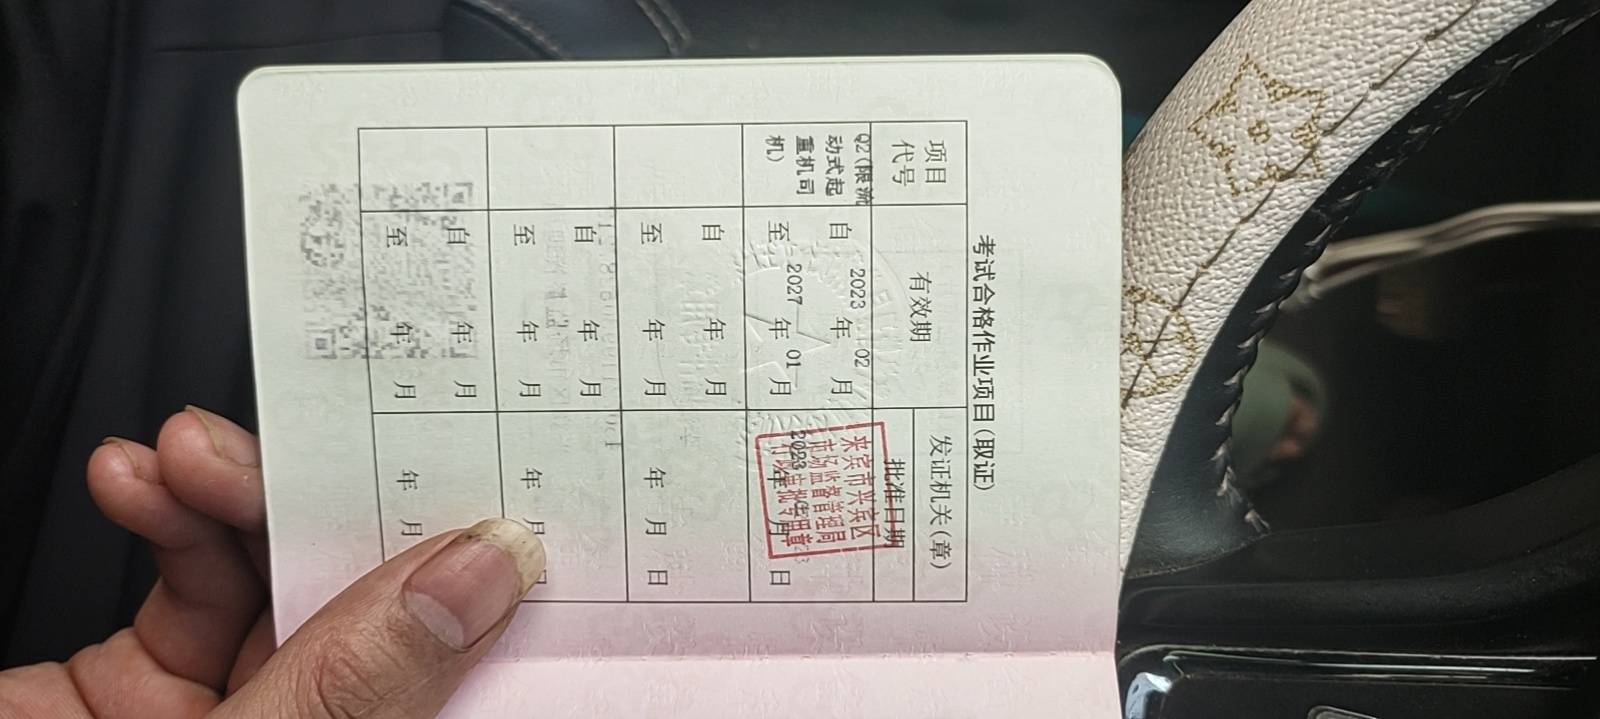 考试合格作业项目(取证)
项目
代号
有效期
发证机关(章)
批准日期
Q2(限流
动式起
重机司
机)
自 2023 年 02 月
至 2027 年 01 月
来宾市兴宾区
市场监督管理局
行政审批专用章
2023 年 月 日
自 年 月
至 年 月
年 月 日
自 年 月
至 年 月
年 月 日
自 年 月
至 年 月
年 月